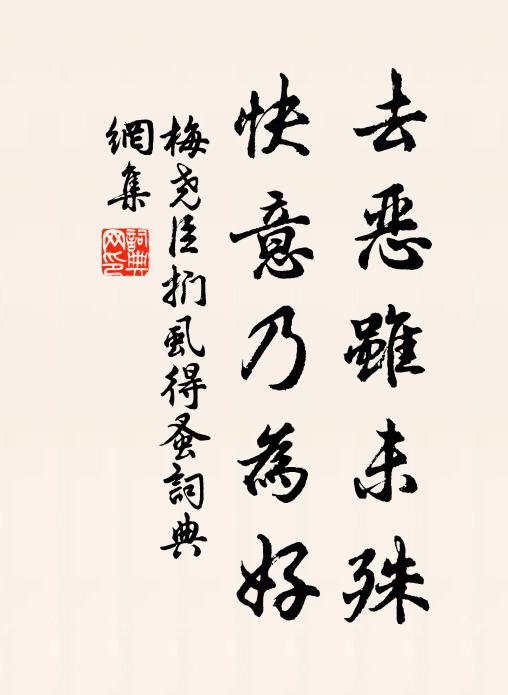 去惡雖未殊
快意乃為好
梅尧臣捫虱得蚤詞典
網集
詞典
网印